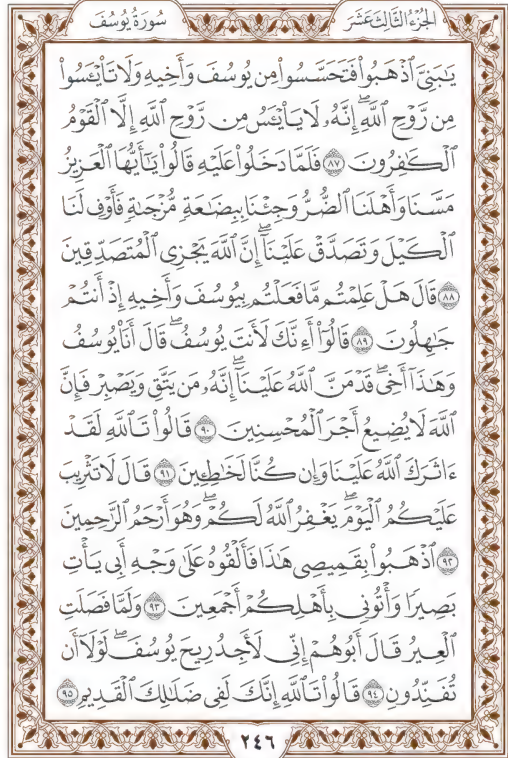 الجزء الثالث عشر
سورة يوسف
يَـٰبَنِىَّ ٱذْهَبُوا۟ فَتَحَسَّسُوا۟ مِن يُوسُفَ وَأَخِيهِ وَلَا تَا۟يْـَٔسُوا۟
مِن رَّوْحِ ٱللَّهِ ۖ إِنَّهُۥ لَا يَا۟يْـَٔسُ مِن رَّوْحِ ٱللَّهِ إِلَّا ٱلْقَوْمُ
ٱلْكَـٰفِرُونَ ٨٧ فَلَمَّا دَخَلُوا۟ عَلَيْهِ قَالُوا۟ يَـٰٓأَيُّهَا ٱلْعَزِيزُ
مَسَّنَا وَأَهْلَنَا ٱلضُّرُّ وَجِئْنَا بِبِضَـٰعَةٍ مُّزْجَىٰةٍ فَأَوْفِ لَنَا
ٱلْكَيْلَ وَتَصَدَّقْ عَلَيْنَآ ۖ إِنَّ ٱللَّهَ يَجْزِى ٱلْمُتَصَدِّقِينَ
٨٨ قَالَ هَلْ عَلِمْتُم مَّا فَعَلْتُم بِيُوسُفَ وَأَخِيهِ إِذْ أَنتُمْ
جَـٰهِلُونَ ٨٩ قَالُوٓا۟ أَءِنَّكَ لَأَنتَ يُوسُفُ ۖ قَالَ أَنَا۠ يُوسُفُ
وَهَـٰذَآ أَخِى ۖ قَدْ مَنَّ ٱللَّهُ عَلَيْنَآ ۖ إِنَّهُۥ مَن يَتَّقِ وَيَصْبِرْ فَإِنَّ
ٱللَّهَ لَا يُضِيعُ أَجْرَ ٱلْمُحْسِنِينَ ٩٠ قَالُوا۟ تَٱللَّهِ لَقَدْ
ءَاثَرَكَ ٱللَّهُ عَلَيْنَا وَإِن كُنَّا لَخَـٰطِـِٔينَ ٩١ قَالَ لَا تَثْرِيبَ
عَلَيْكُمُ ٱلْيَوْمَ ۖ يَغْفِرُ ٱللَّهُ لَكُمْ ۖ وَهُوَ أَرْحَمُ ٱلرَّٰحِمِينَ
٩٢ ٱذْهَبُوا۟ بِقَمِيصِى هَـٰذَا فَأَلْقُوهُ عَلَىٰ وَجْهِ أَبِى يَأْتِ
بَصِيرًا وَأْتُونِى بِأَهْلِكُمْ أَجْمَعِينَ ٩٣ وَلَمَّا فَصَلَتِ
ٱلْعِيرُ قَالَ أَبُوهُمْ إِنِّى لَأَجِدُ رِيحَ يُوسُفَ ۖ لَوْلَآ أَن
تُفَنِّدُونِ ٩٤ قَالُوا۟ تَٱللَّهِ إِنَّكَ لَفِى ضَلَـٰلِكَ ٱلْقَدِيمِ ٩٥
٢٤٦